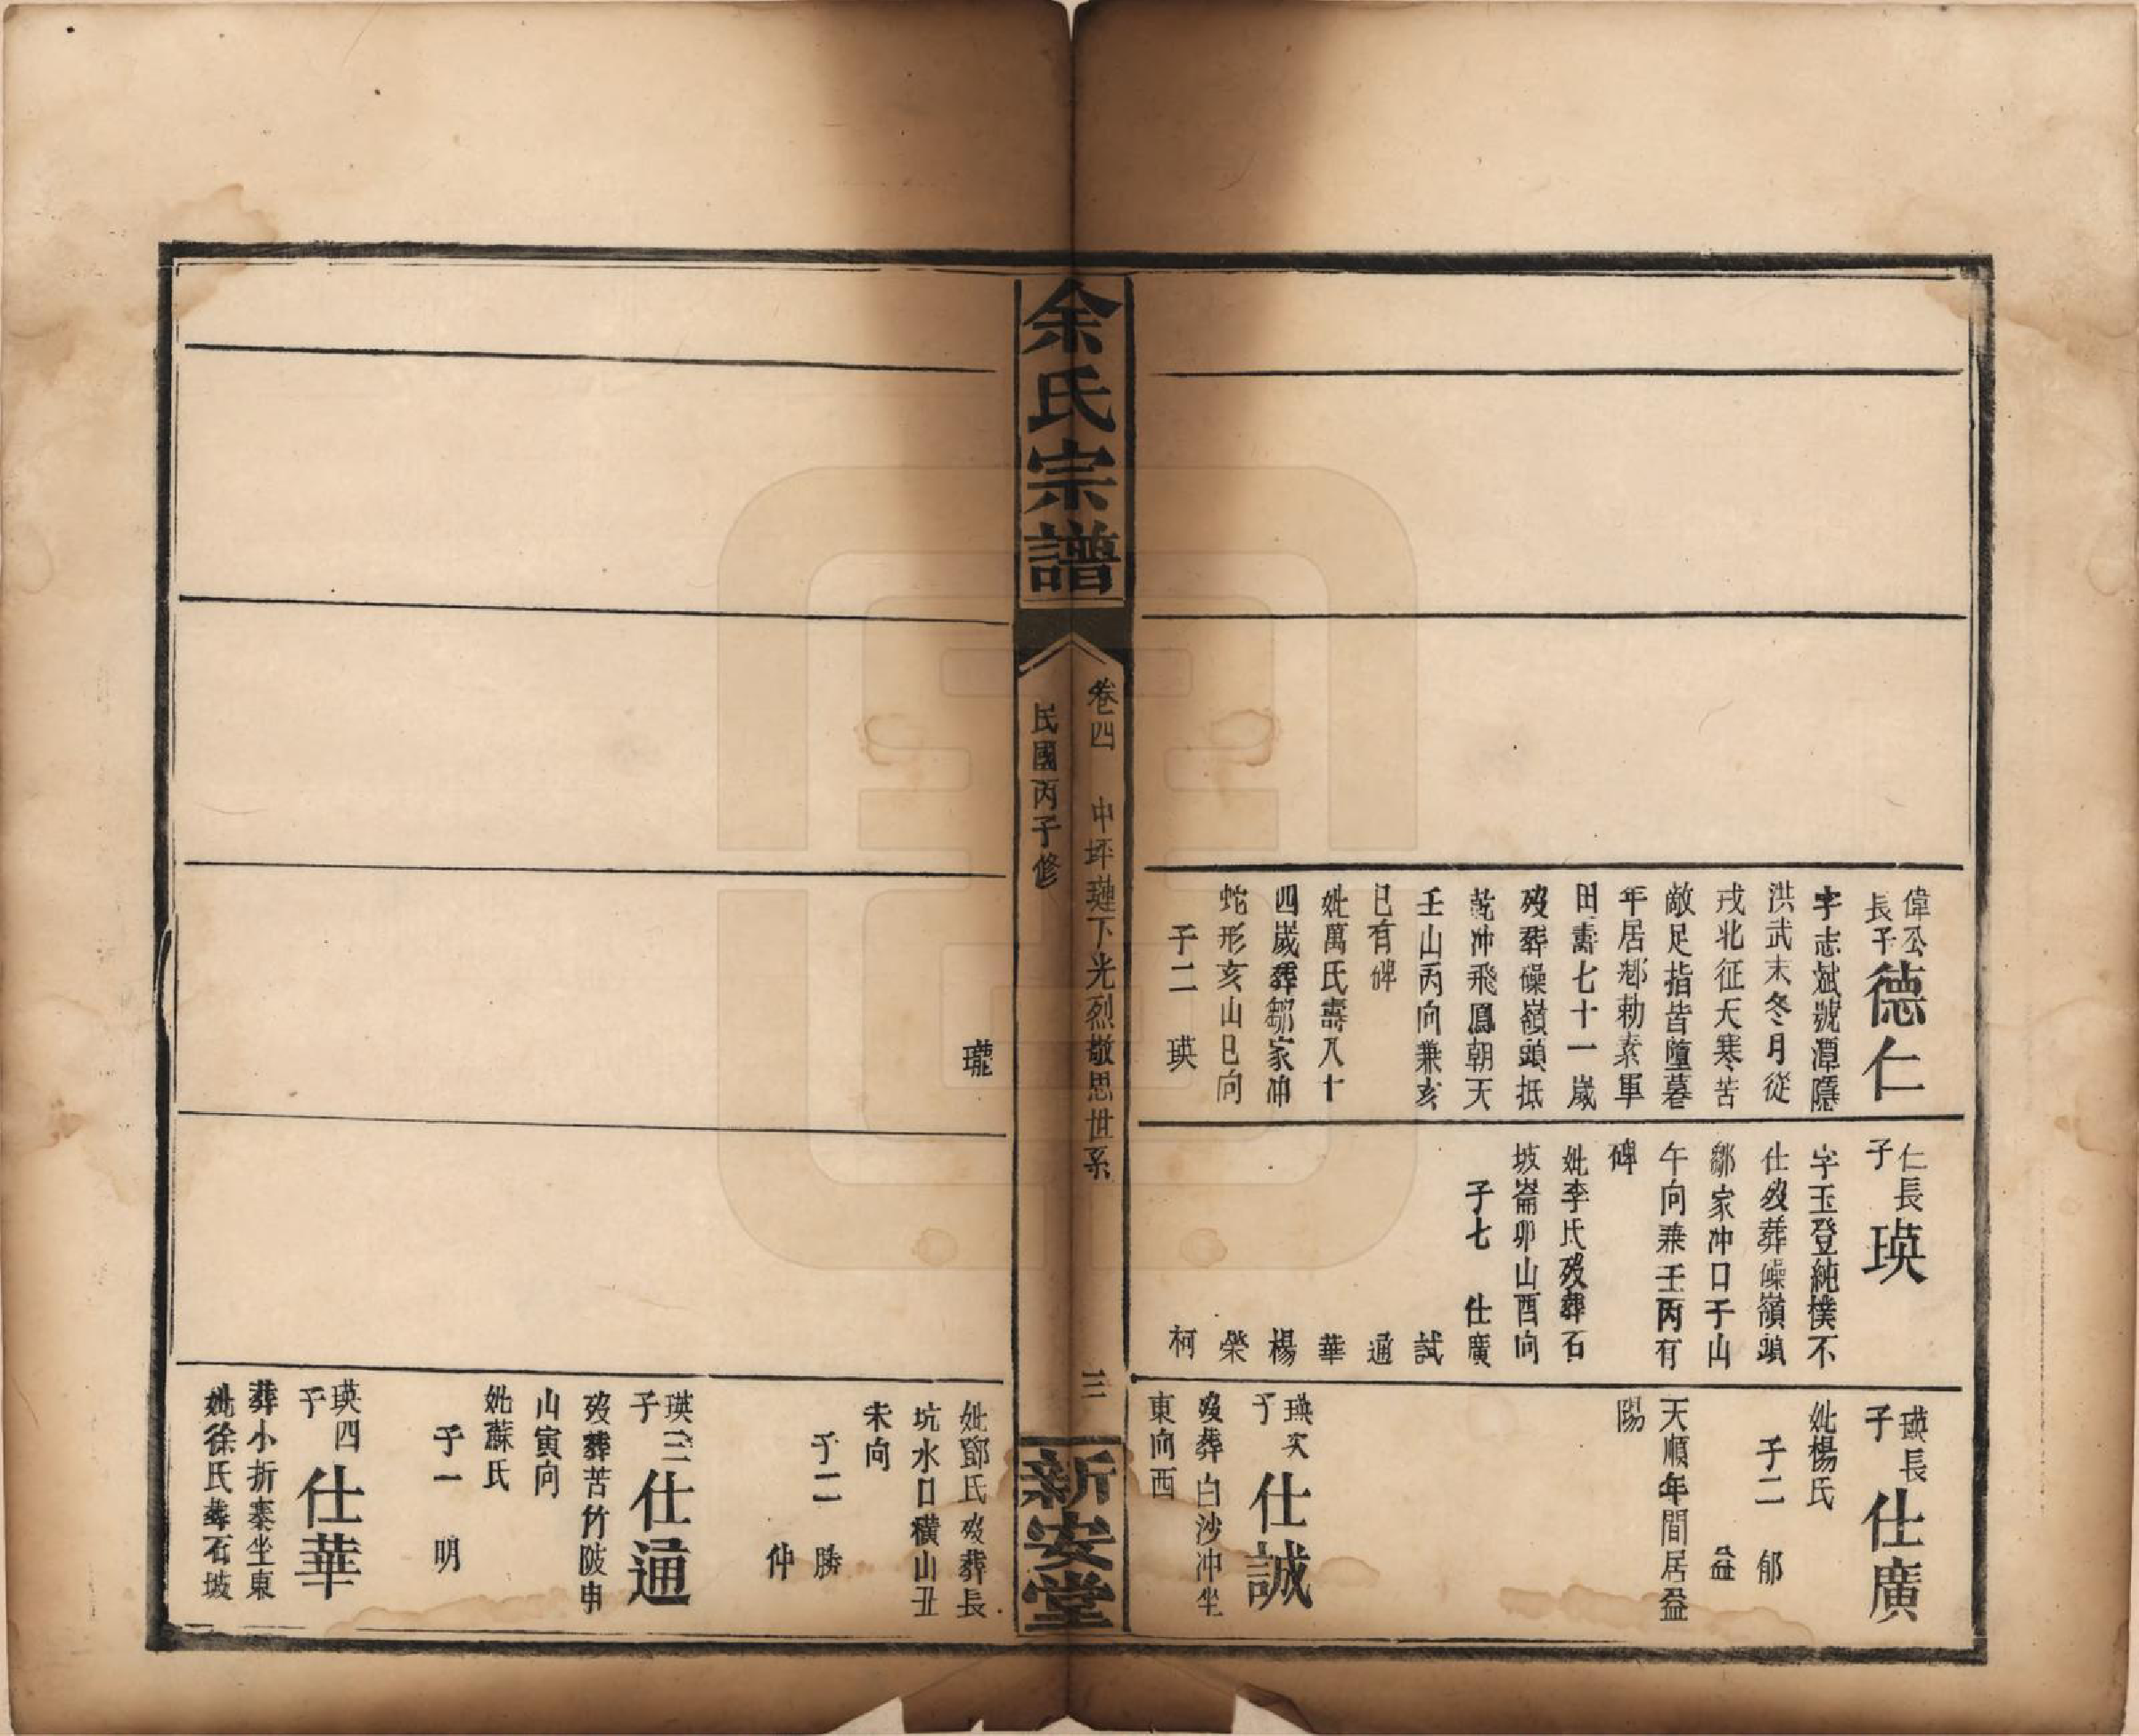 偉公長子德仁
字志斌號潭隱
洪武末冬月從
戎北征天寒苦
敵足指皆墮暮
年居鄰勅素軍
田壽七十一歲
歿葬礤嶺頭抵
乾冲飛鳳朝天
壬山丙向兼亥
巳有碑
妣萬氏壽八十
四歲葬鄒家冲
蛇形亥山巳向
子二 瑛
仁長子瑛
字玉登純樸不
仕歿葬礤嶺頭
鄒家冲口子山
午向兼壬丙有
碑
妣李氏歿葬石
坡崙卯山酉向
子七 仕廣
試
通
華
楊
榮
柯
瑛長子仕廣
妣楊氏
子二 郁
益
天順年間居益
陽
瑛次子仕誠
歿葬白沙冲坐
東向西
余氏宗譜
卷四 中坪璉下光烈敬思世系
三
民國丙子修
新安堂
瓏
妣鄧氏歿葬長
坑水口橫山丑
未向
子二 勝
仲
瑛三子仕通
歿葬苦竹陂申
山寅向
妣蘇氏
子一 明
瑛四子仕華
葬小折泰坐東
妣徐氏葬石坡